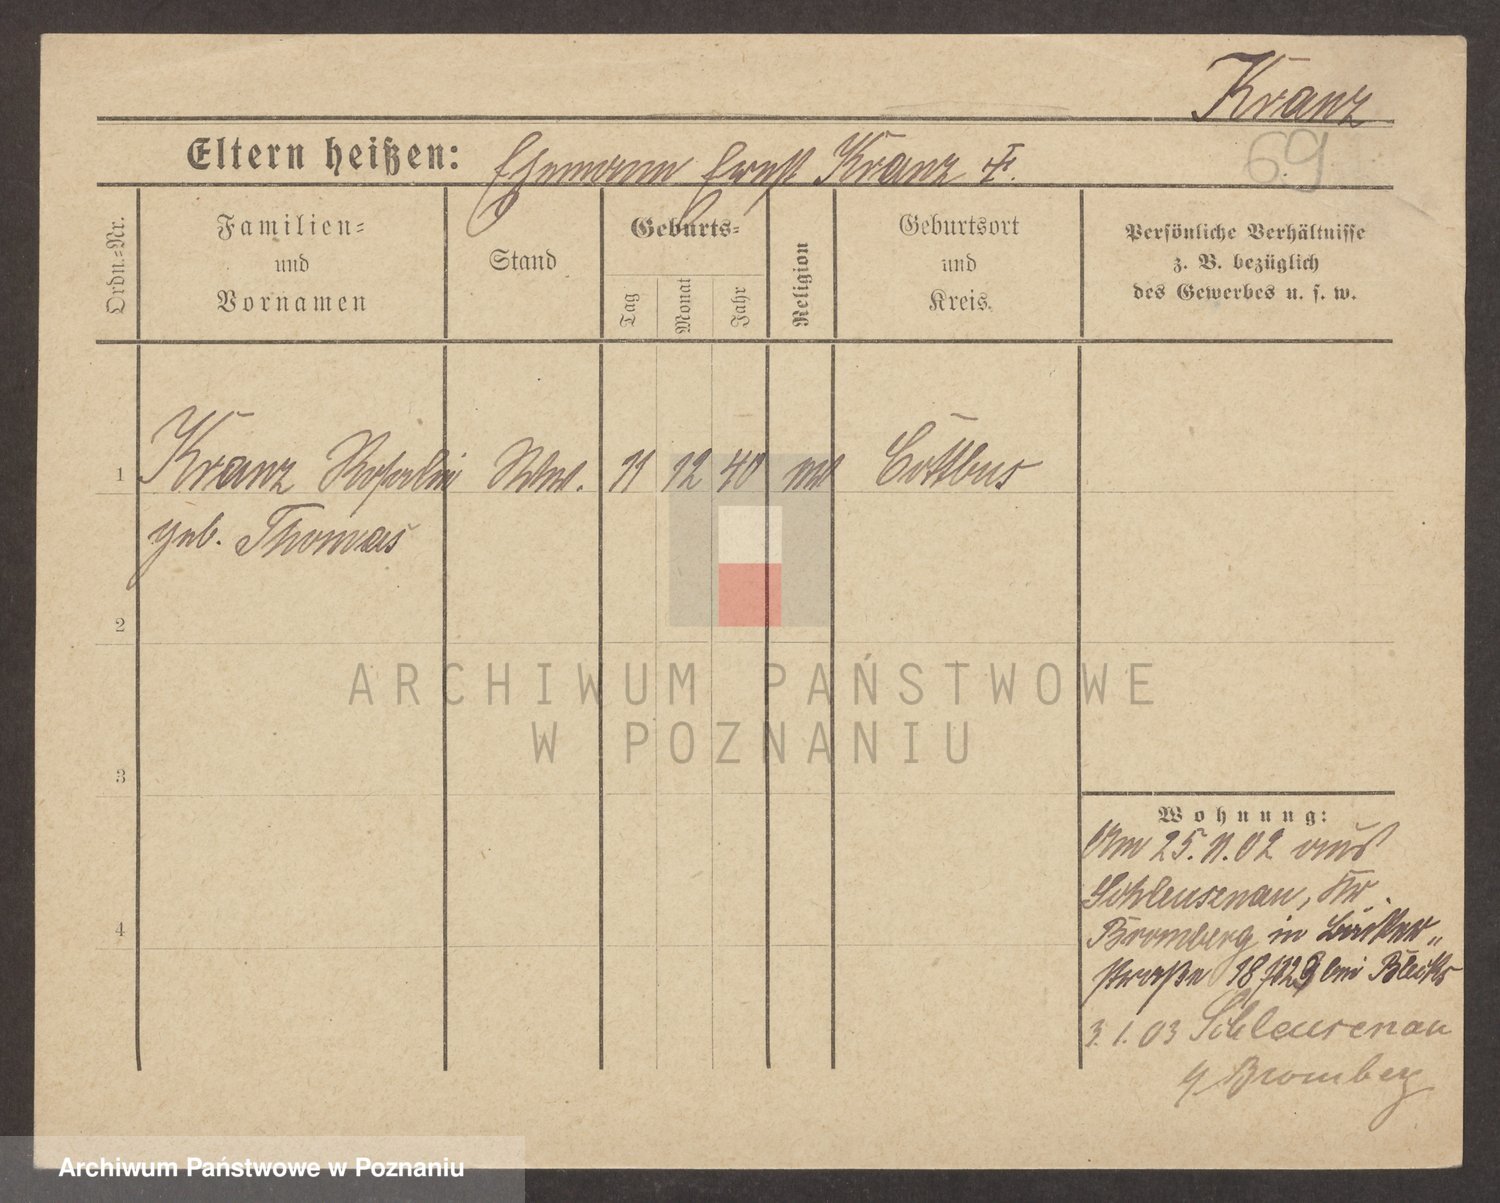 Kranz
69
Eltern heißen: Ehemann Ernst Kranz †.
Ordn.-Nr.
Familien-
und
Vornamen
Stand
Geburts-
Tag
Monat
Jahr
Religion
Geburtsort
und
Kreis.
Persönliche Verhältnisse
z. B. bezüglich
des Gewerbes u. s. w.
1 Kranz Rosalie Wwe. 11 12 40 ev Cottbus
geb. Thomas
2
ARCHIWUM PAŃSTWOWE
W POZNANIU
3
Wohnung:
Am 25.11.02 aus
Schleusenau, Kr.
4
Bromberg in Bäcker„
straße 18 bei
3.1.03 Schleusenau
Bromberg
Archiwum Państwowe w Poznaniu